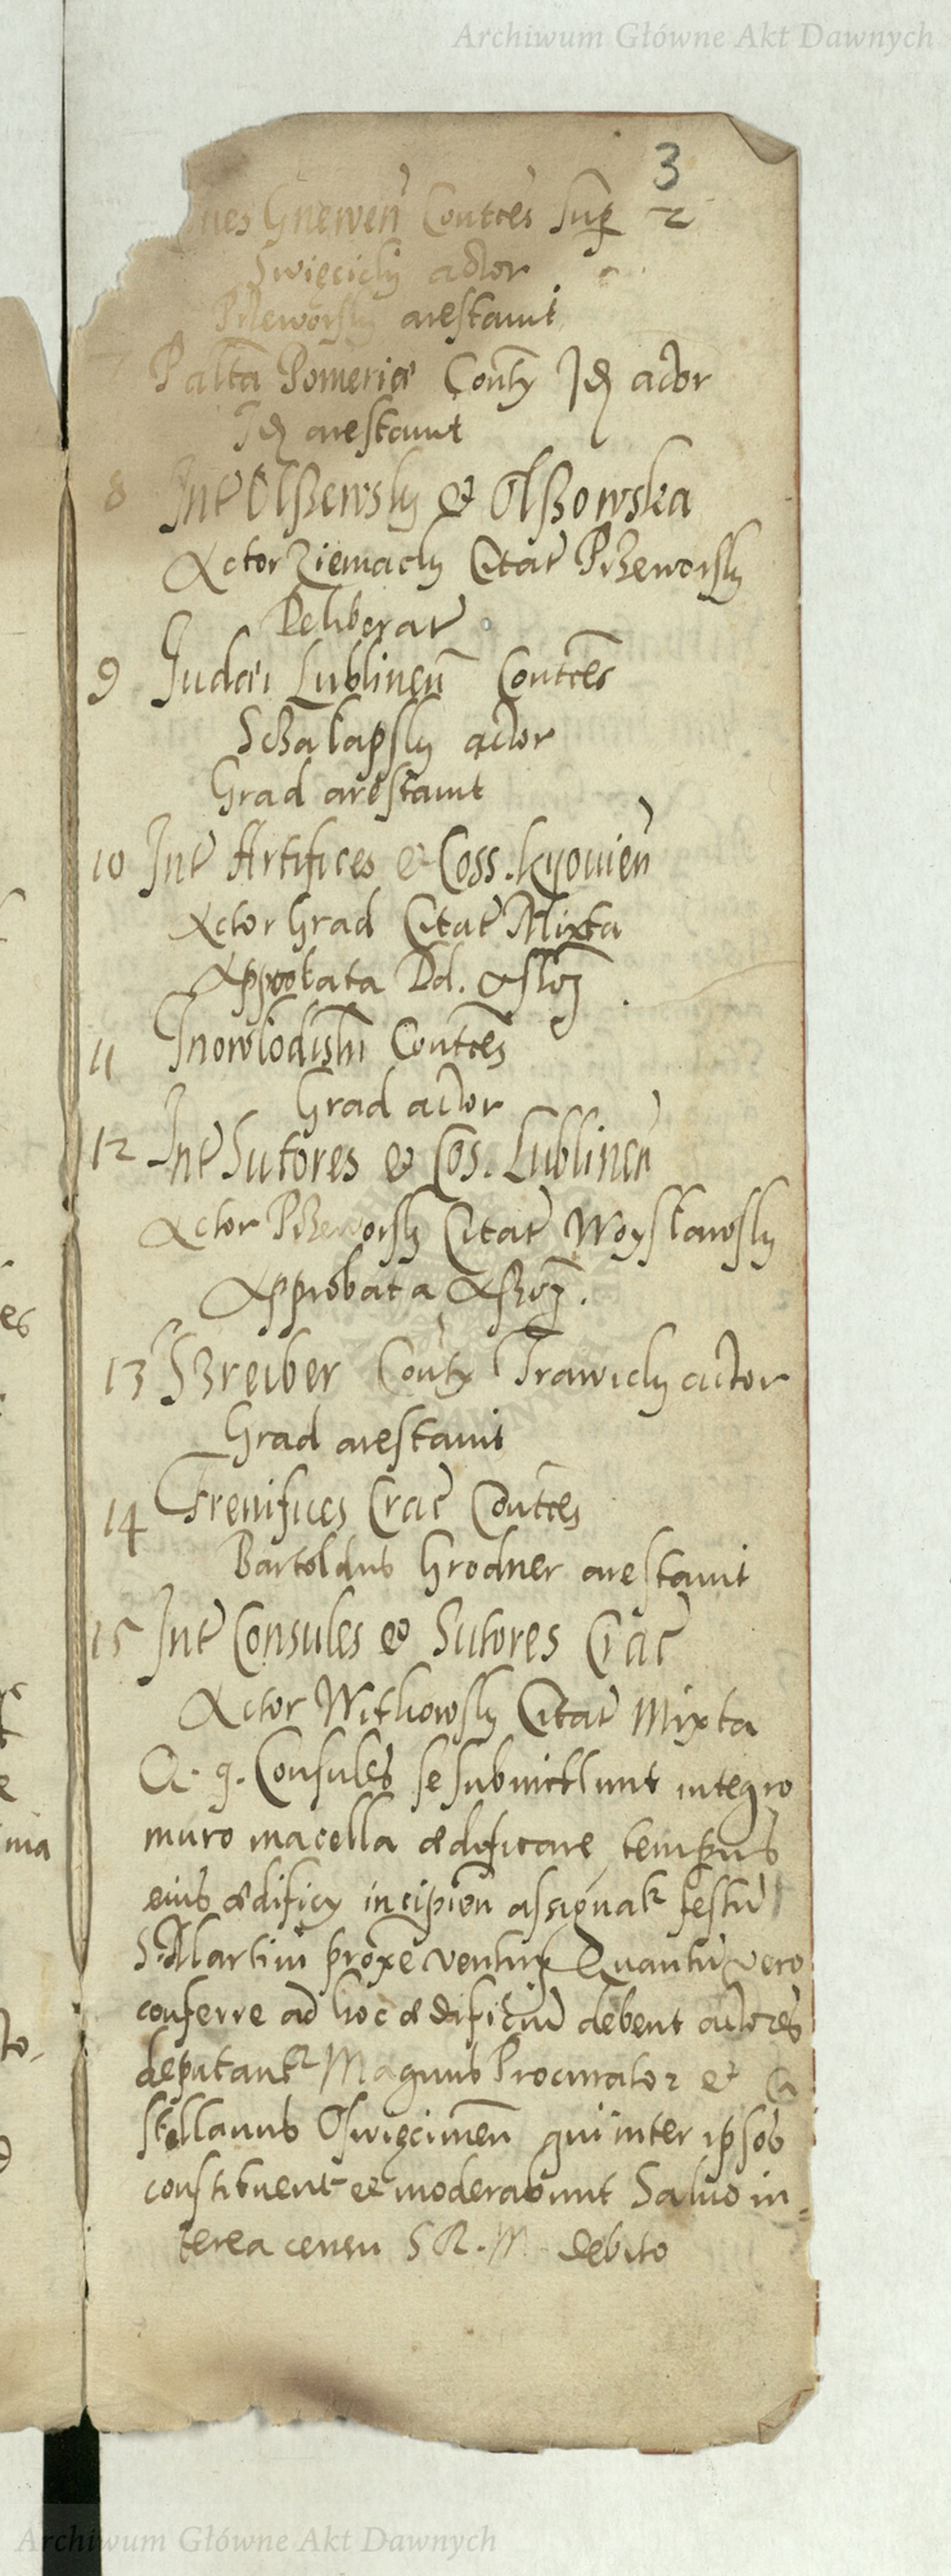 Archiwum Główne Akt Dawnych
3
ues Gneweń Contces sup 2
Swięcicky actor
Przeworsky arestavit
Palta Pomeriæ Contz Id actor
Id arestavit
8 Int Olszewsky & Olszowska
Actor Ziemacky Citat Przeworsky
Deliberat
9 Judæi Lublineñ Contces
Actor
Grad arestavit
10 Int Artifices & Coss. Kyovień
Actor Grad Citat Mixta
Approbata Dd.
11 Inowlodishi Contces
Grad actor
12 Int Sutores & Cos. Lublineñ
Actor Przeworsky Citat Woyslawsky
Approbata
13 Szreiber Contz Trawicky actor
Grad arestavit
14 Frenifices Crac Contces
Bartoldus Grodner arestavit
15 Int Consules & Sutores Crac
Actor Withowsky Citat Mixta
Consules se submittunt integro
muro macella ædificare, tempus
eius ædificy incipien assignat festu
S. Martini proxe ventur Quantu vero
conferre ad hoc ædificiu debent actores
deputantr Magnus Procurator et Ca
stellanus Oswięcimeñ qui inter ipsos
constituent et moderabunt Salvo in=
terea censu S R. M debito
Archiwum Główne Akt Dawnych